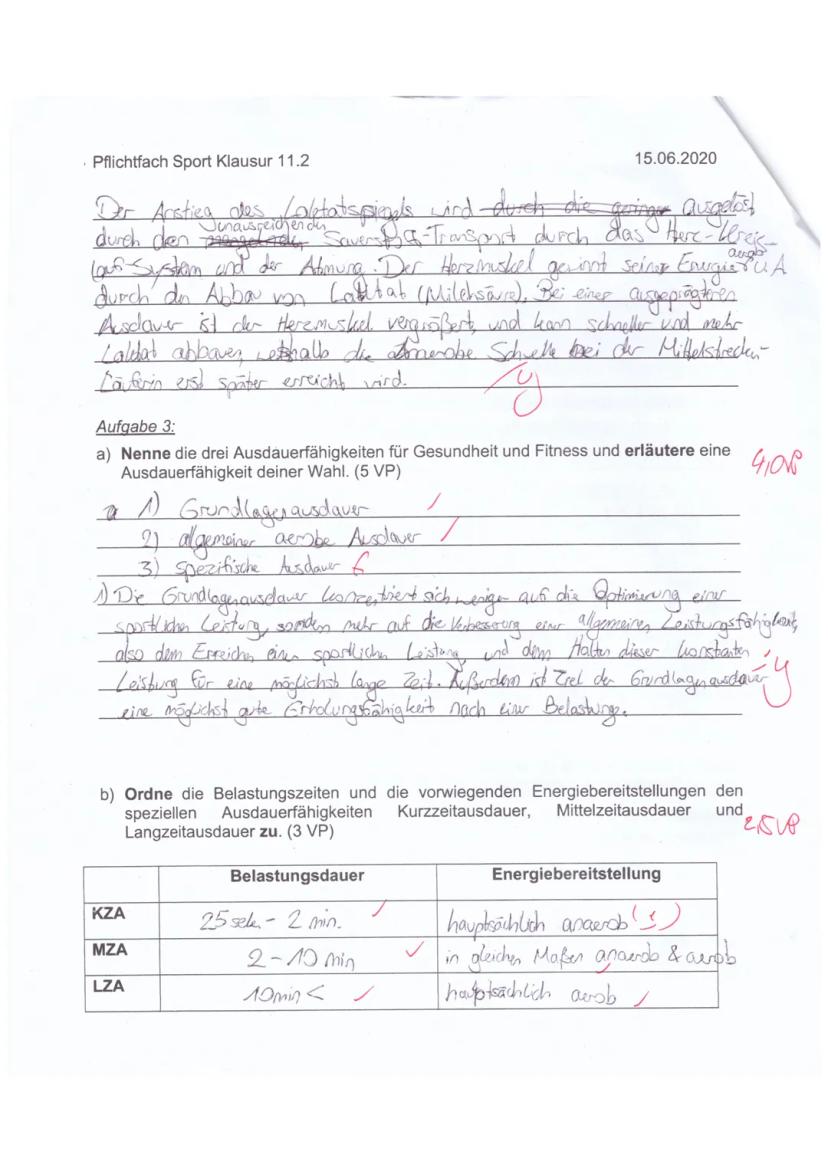 Pflichtfach Sport Klausur 11.2 15.06.2020
Der Anstieg des Laktatspiegels wird durch die geringe ausgelöst
durch den unausreichenden Sauerstoff-Transport durch das Herz-Kreis-
lauf-System und der Atmung. Der Herzmuskel gewinnt seine Energie aerob u. A
durch den Abbau von Laktat (Milchsäure). Bei einer ausgeprägteren
Ausdauer ist der Herzmuskel vergrößert, und kann schneller und mehr
Laktat abbauen, weshalb die anaerobe Schwelle bei der Mittelstrecken-
Läuferin erst später erreicht wird.
Aufgabe 3:
a) Nenne die drei Ausdauerfähigkeiten für Gesundheit und Fitness und erläutere eine
Ausdauerfähigkeit deiner Wahl. (5 VP)
4,0VP
a 1) Grundlagenausdauer
2) allgemeiner aerobe Ausdauer
3) spezifische Ausdauer f
1) Die Grundlagenausdauer konzentriert sich weniger auf die Optimierung einer
sportlichen Leistung, sondern mehr auf die Verbesserung einer allgemeinen Leistungsfähigkeit,
also dem Erreichen einer sportlichen Leistung und dem Halten dieser konstanten
Leistung für eine möglichst lange Zeit. Außerdem ist Ziel der Grundlagenausdauer
eine möglichst gute Erholungsfähigkeit nach einer Belastung.
b) Ordne die Belastungszeiten und die vorwiegenden Energiebereitstellungen den
speziellen Ausdauerfähigkeiten Kurzzeitausdauer, Mittelzeitausdauer und
Langzeitausdauer zu. (3 VP)
2,5VP
Belastungsdauer Energiebereitstellung
KZA 25 sek. - 2 min. hauptsächlich anaerob
MZA 2-10 min in gleichen Maßen anaerob & aerob
LZA 10min < hauptsächlich aerob